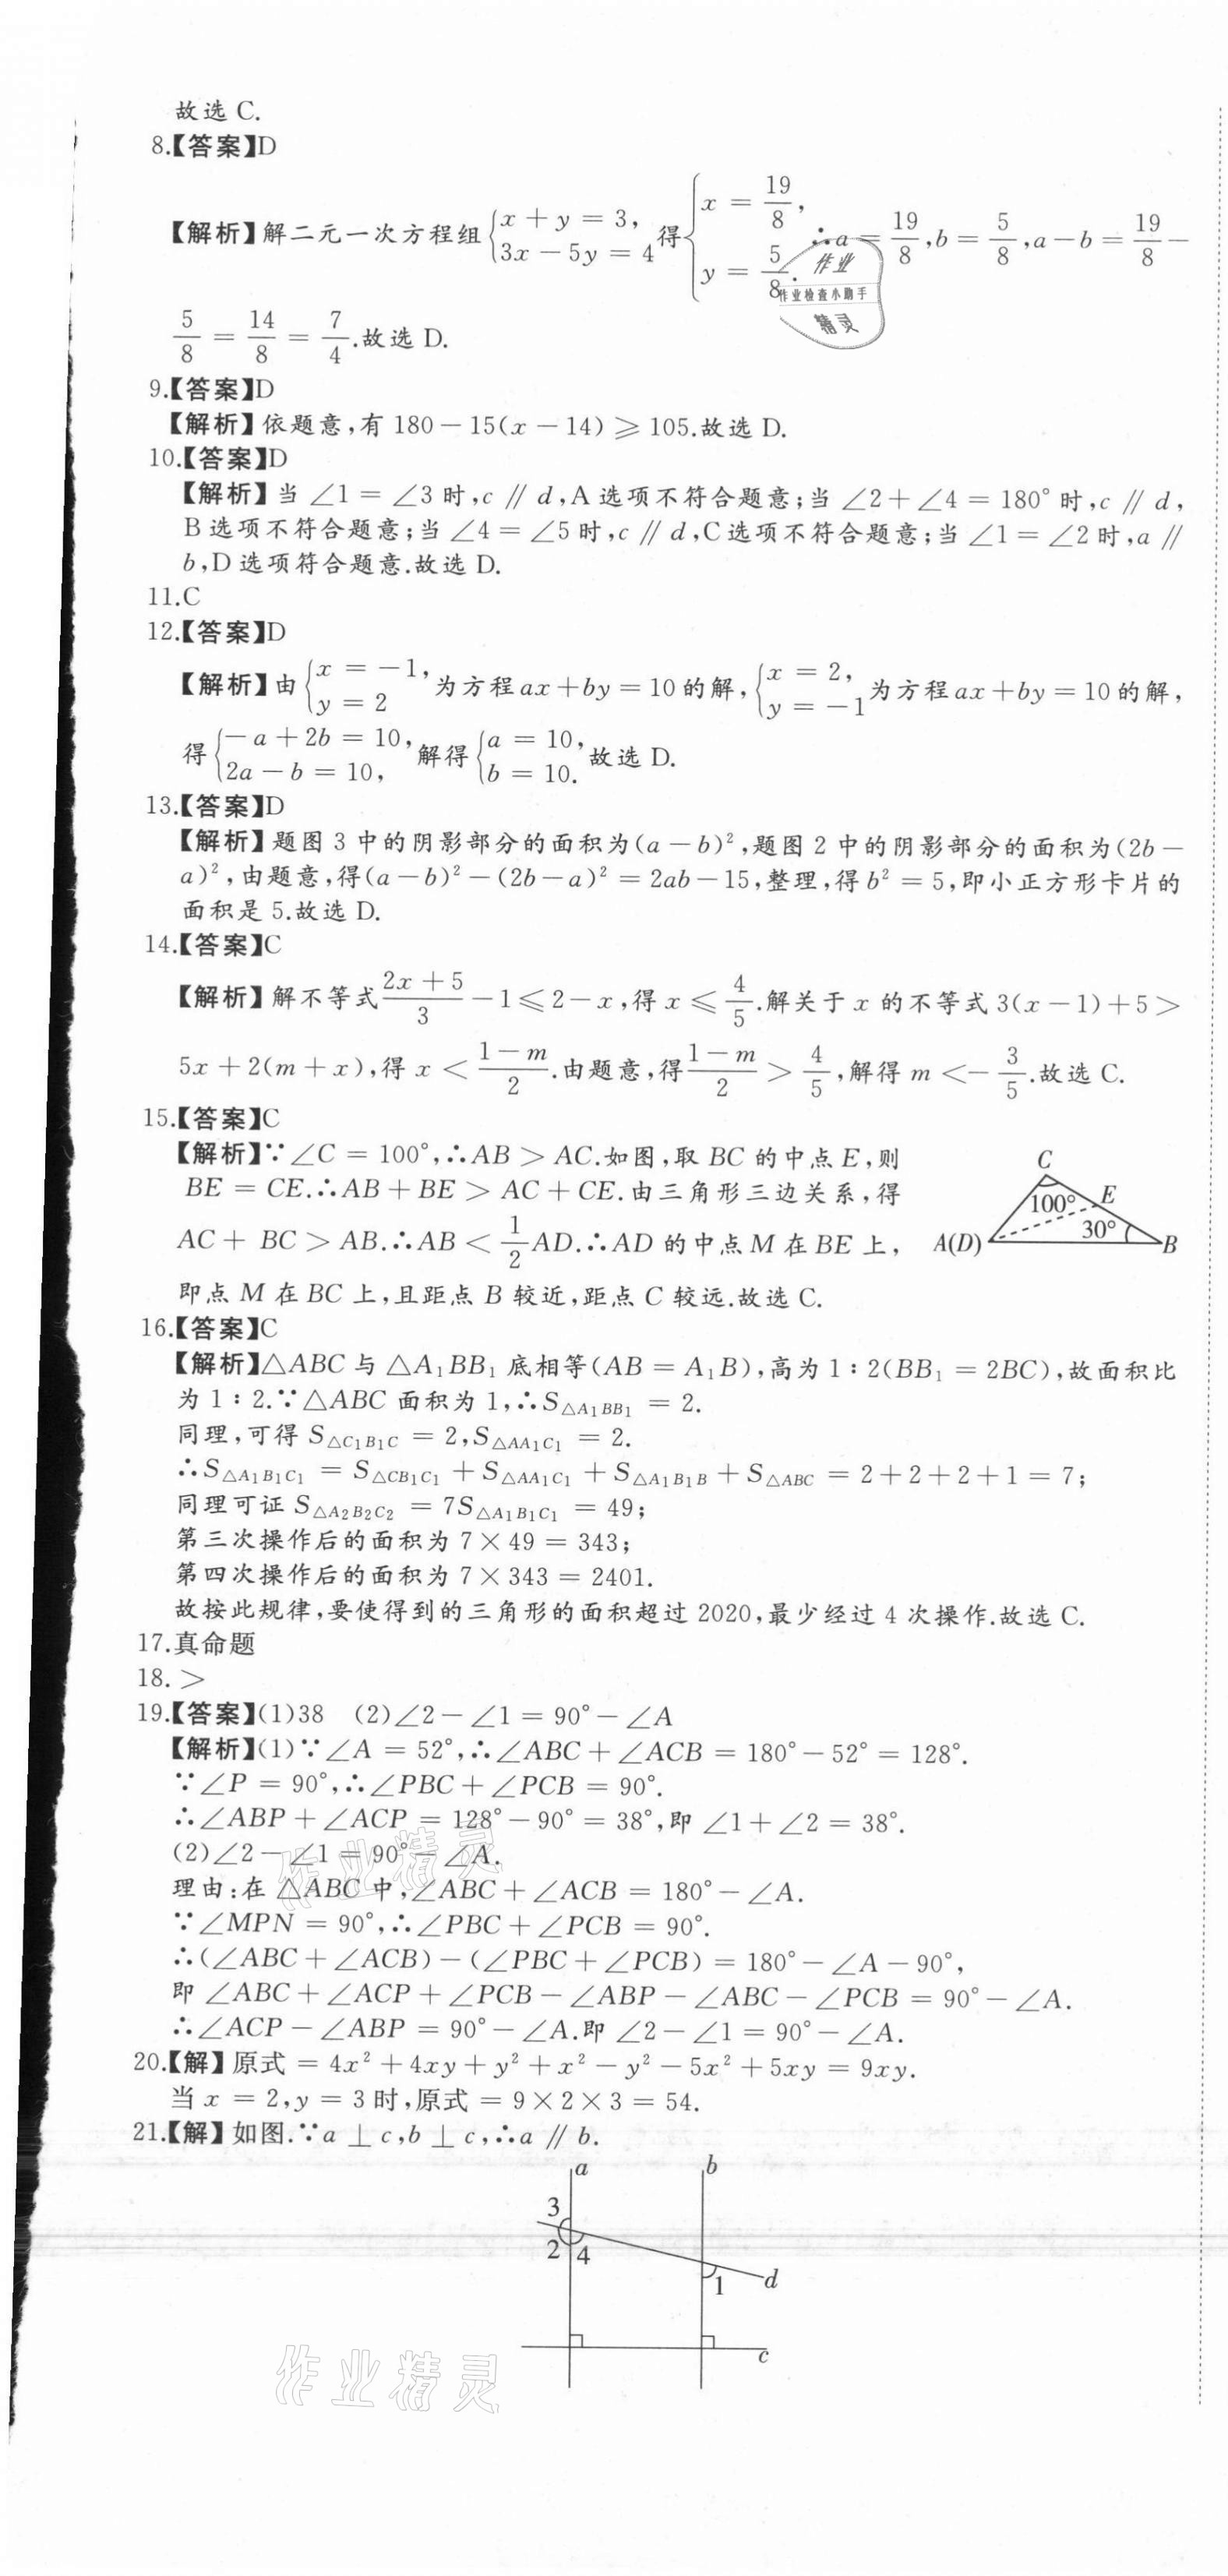 故选 C.
8.【答案】D
【解析】解二元一次方程组{x+y=3, 3x-5y=4 得{x=19/8, y=5/8. ∴a=19/8,b=5/8,a-b=19/8-
5/8=14/8=7/4.故选 D.
9.【答案】D
【解析】依题意,有 180-15(x-14)≥105.故选 D.
10.【答案】D
【解析】当∠1=∠3时,c∥d,A选项不符合题意;当∠2+∠4=180°时,c∥d,
B选项不符合题意;当∠4=∠5时,c∥d,C选项不符合题意;当∠1=∠2时,a∥
b,D选项符合题意.故选 D.
11.C
12.【答案】D
【解析】由{x=-1, y=2 为方程ax+by=10的解,{x=2, y=-1 为方程ax+by=10的解,
得{-a+2b=10, 2a-b=10, 解得{a=10, b=10. 故选 D.
13.【答案】D
【解析】题图 3 中的阴影部分的面积为(a-b)²,题图 2 中的阴影部分的面积为(2b-
a)²,由题意,得(a-b)²-(2b-a)²=2ab-15,整理,得b²=5,即小正方形卡片的
面积是 5.故选 D.
14.【答案】C
【解析】解不等式(2x+5)/3-1≤2-x,得x≤4/5.解关于x的不等式3(x-1)+5>
5x+2(m+x),得x<(1-m)/2.由题意,得(1-m)/2>4/5,解得m<-3/5.故选 C.
15.【答案】C
【解析】∵∠C=100°,∴AB>AC.如图,取BC的中点E,则
BE=CE.∴AB+BE>AC+CE.由三角形三边关系,得
AC+BC>AB.∴AB<1/2AD.∴AD的中点M在BE上,
即点M在BC上,且距点B较近,距点C较远.故选 C.
C
100°
E
30°
A(D)
B
16.【答案】C
【解析】△ABC与△A₁BB₁底相等(AB=A₁B),高为1∶2(BB₁=2BC),故面积比
为1∶2.∵△ABC面积为1,∴S△A₁BB₁=2.
同理,可得S△C₁B₁C=2,S△AA₁C₁=2.
∴S△A₁B₁C₁=S△CB₁C₁+S△AA₁C₁+S△A₁B₁B+S△ABC=2+2+2+1=7;
同理可证S△A₂B₂C₂=7S△A₁B₁C₁=49;
第三次操作后的面积为7×49=343;
第四次操作后的面积为7×343=2401.
故按此规律,要使得到的三角形的面积超过2020,最少经过4次操作.故选 C.
17.真命题
18.>
19.【答案】(1)38 (2)∠2-∠1=90°-∠A
【解析】(1)∵∠A=52°,∴∠ABC+∠ACB=180°-52°=128°.
∵∠P=90°,∴∠PBC+∠PCB=90°.
∴∠ABP+∠ACP=128°-90°=38°,即∠1+∠2=38°.
(2)∠2-∠1=90°-∠A.
理由:在△ABC中,∠ABC+∠ACB=180°-∠A.
∵∠MPN=90°,∴∠PBC+∠PCB=90°.
∴(∠ABC+∠ACB)-(∠PBC+∠PCB)=180°-∠A-90°,
即∠ABC+∠ACP+∠PCB-∠ABP-∠ABC-∠PCB=90°-∠A.
∴∠ACP-∠ABP=90°-∠A.即∠2-∠1=90°-∠A.
20.【解】原式=4x²+4xy+y²+x²-y²-5x²+5xy=9xy.
当x=2,y=3时,原式=9×2×3=54.
21.【解】如图.∵a⊥c,b⊥c,∴a∥b.
a
b
3
2
4
1
d
c
作业
作业检查小助手
精灵
作业精灵
作业精灵